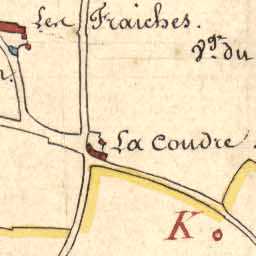 Les Fraiches.
Vge. du
n.
La Coudre.
K